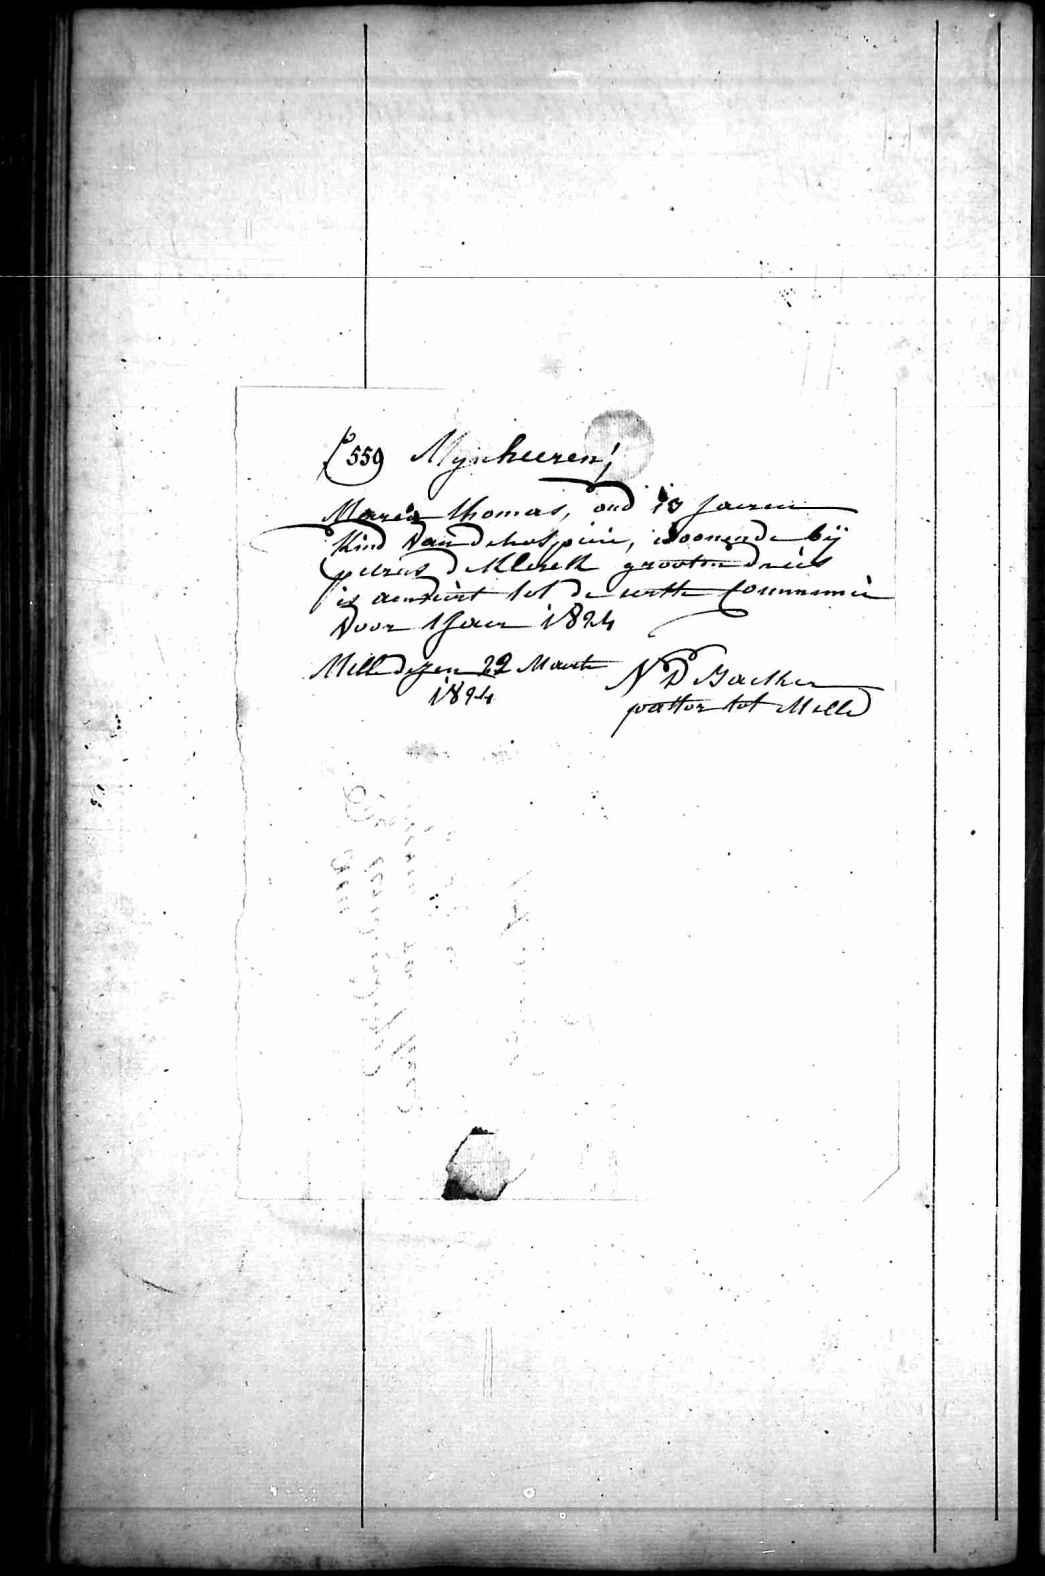 559 Mynheeren!
Maria thomas, oud 13 Jaeren
Kind van de hospicie, woonende bij
petrus de Klerck grooten driès
is aenveirt tot de eerste Communie
voor 't Jaer 1824
Mille dezen 22 Maerte
1824
N D Backer
pastor tot Mille